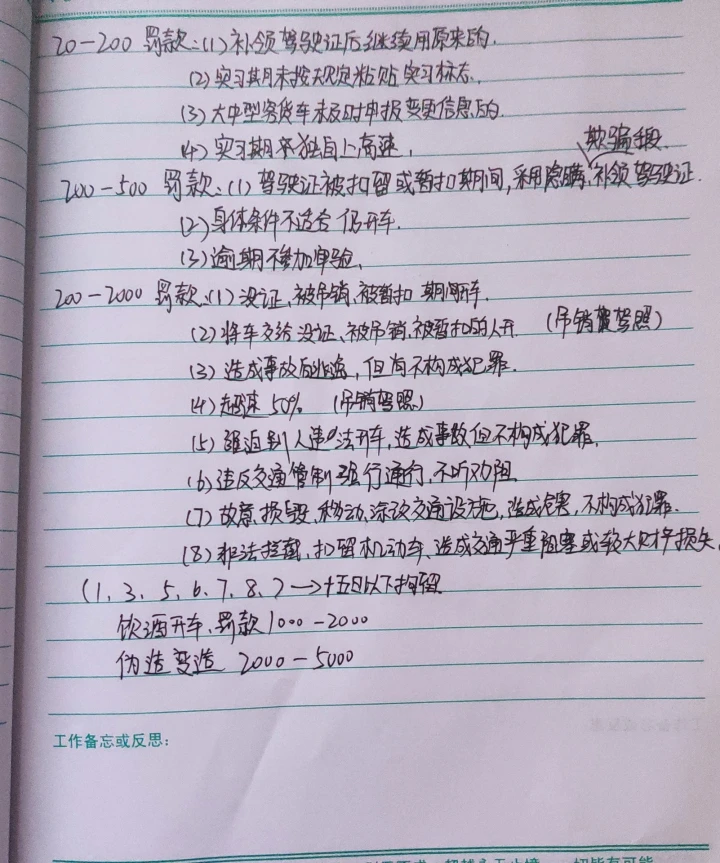 20-200 罚款:(1)补领驾驶证后继续用原来的.
(2)实习期未按规定粘贴实习标志.
(3)大中型客货车未及时申报变更信息的.
(4)实习期 独自上高速.
欺骗手段.
200-500 罚款:(1)驾驶证被扣留或暂扣期间,采用隐瞒、补领驾驶证.
(2)身体条件不适合仍开车.
(3)逾期不参加审验.
200-2000 罚款:(1)没证、被吊销、被暂扣 期间开车.
(2)将车交给没证、被吊销、被暂扣的人开 (吊销驾照)
(3)造成事故后逃逸,但尚不构成犯罪.
(4)超速50% (吊销驾照)
(5)强迫别人违法开车,造成事故但不构成犯罪.
(6)违反交通管制强行通行,不听劝阻
(7)故意损毁、移动、涂改交通设施,造成危害,不构成犯罪.
(8)非法拦截、扣留机动车、造成交通严重阻塞或较大财产损失.
(1、3、5、6、7、8、)→十五日以下拘留
饮酒开车、罚款1000-2000
伪造变造 2000-5000
工作备忘或反思: